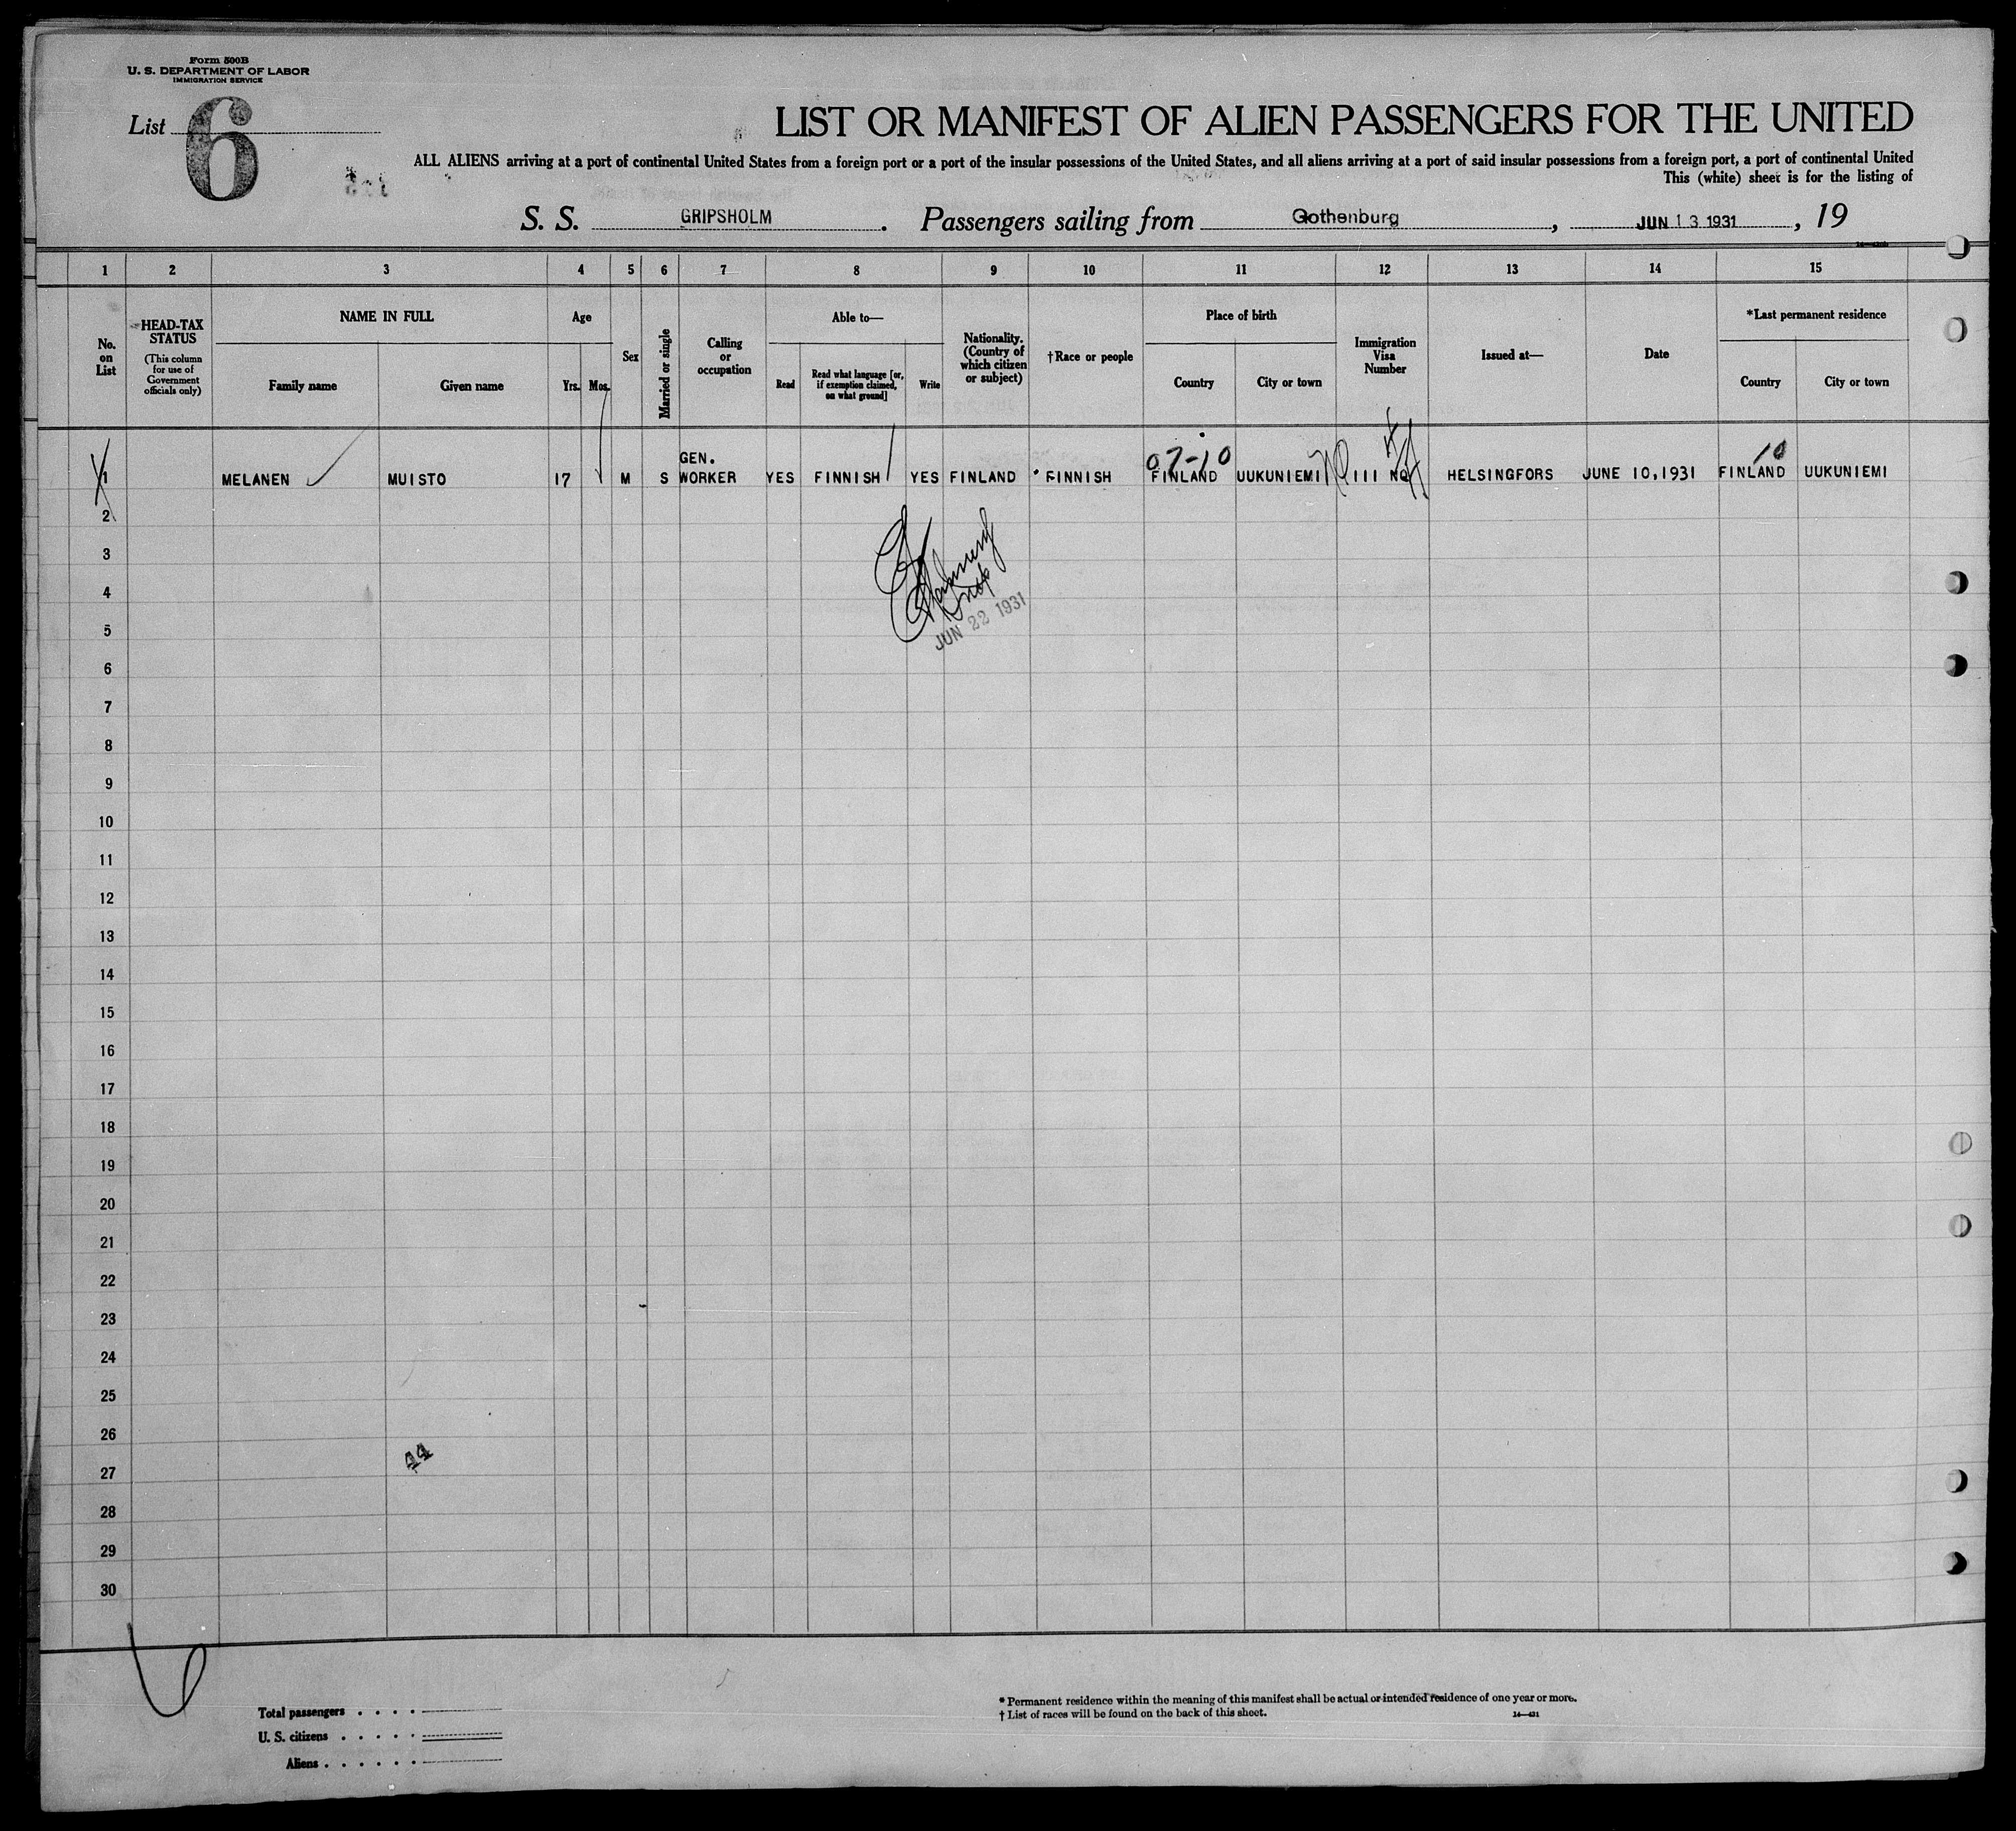 Form 500B
U. S. DEPARTMENT OF LABOR
IMMIGRATION SERVICE
List 6
LIST OR MANIFEST OF ALIEN PASSENGERS FOR THE UNITED
ALL ALIENS arriving at a port of continental United States from a foreign port or a port of the insular possessions of the United States, and all aliens arriving at a port of said insular possessions from a foreign port, a port of continental United
This (white) sheet is for the listing of
S. S. GRIPSHOLM . Passengers sailing from Gothenburg , JUN 13 1931 , 19
1 2 3 4 5 6 7 8 9 10 11 12 13 14 15
No. on List
HEAD-TAX STATUS
(This column for use of Government officials only)
NAME IN FULL
Family name Given name
Age
Yrs. Mos.
Sex
Married or single
Calling or occupation
Able to—
Read
Read what language [or, if exemption claimed, on what ground]
Write
Nationality. (Country of which citizen or subject)
†Race or people
Place of birth
Country City or town
Immigration Visa Number
Issued at—
Date
*Last permanent residence
Country City or town
07-10 10
1 MELANEN MUISTO 17 M S GEN. WORKER YES FINNISH YES FINLAND FINNISH FINLAND UUKUNIEMI III NQ HELSINGFORS JUNE 10,1931 FINLAND UUKUNIEMI
2
3
4
5
JUN 22 1931
6
7
8
9
10
11
12
13
14
15
16
17
18
19
20
21
22
23
24
25
26
44
27
28
29
30
Total passengers . . . .
U. S. citizens . . . . .
Aliens . . . . . .
* Permanent residence within the meaning of this manifest shall be actual or intended residence of one year or more.
† List of races will be found on the back of this sheet.
14—431